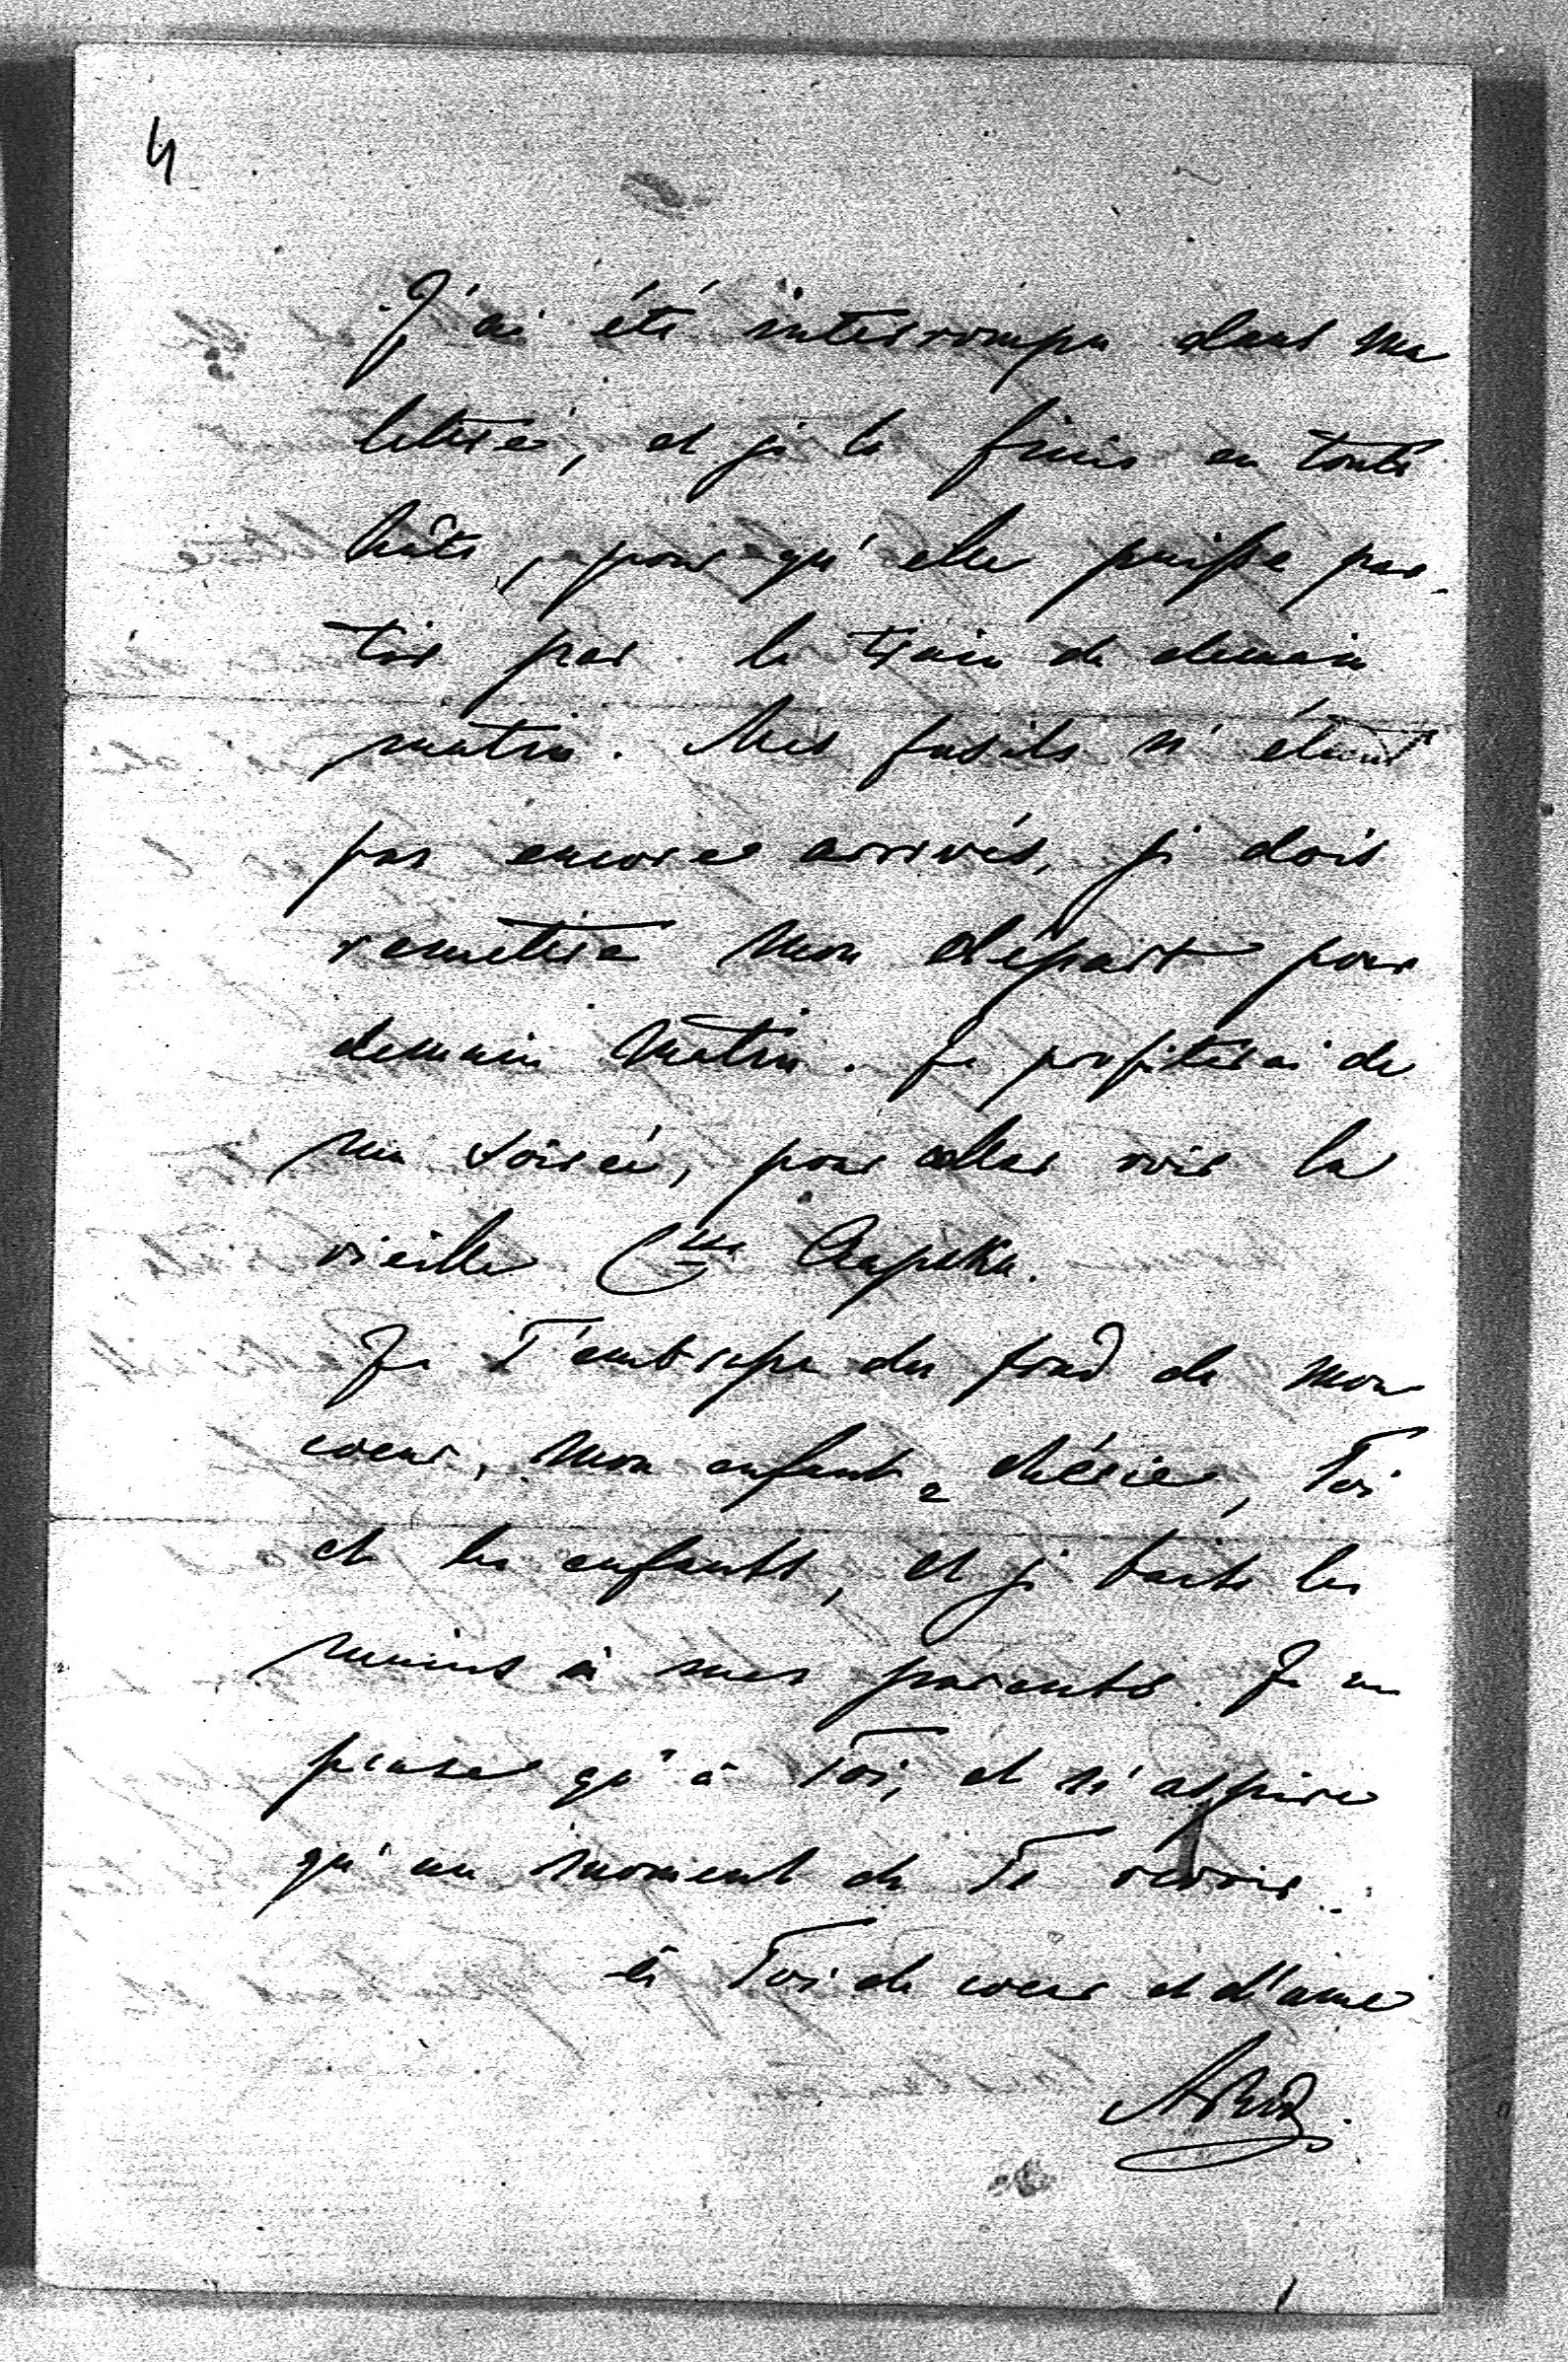 4
J'ai été interrompu dans ma
lettre, et je la finis en toute
hâte, pour qu'elle puisse par-
tir par le train de demain
matin. Mes fusils n'étant
pas encore arrivés, je dois
remettre mon départ pour
demain matin. Je profiterai de
ma soirée, pour aller voir la
vieille Csse
Je T'embrasse du fond de mon
coeur, mon enfant chérie, Toi
et les enfants, et je baise les
mains à mes parents. Je ne
pense qu'à Toi, et n'aspire
qu'au moment de Te revoir.
à Toi de coeur et d'ame